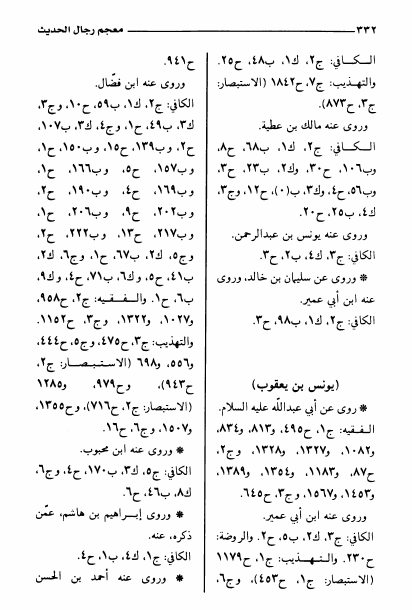 ٣٣٢
معجم رجال الحديث
الكافي: ج٢، ك١، ب٤٨، ح٢٥.
والتهذيب: ج٧، ح١٨٤٢ (الاستبصار:
ج٣، ح٨٧٣).
وروى عنه مالك بن عطية.
الكافي: ج٢، ك١، ب٦٨، ح٨،
وب١٠٦، ح٣٠، وك٢، ب٢٣، ح٣،
وب٥٦، ح٤، وك٣، ب(٠)، ح١٢، وج٣،
ك٤، ب٢٥، ح٢٠.
وروى عنه يونس بن عبدالرحمن.
الكافي: ج٣، ك٤، ب٢، ح٣.
* وروى عن سليمان بن خالد، وروى
عنه ابن أبي عمير.
الكافي: ج٢، ك١، ب٩٨، ح٣.
(يونس بن يعقوب)
* روى عن أبي عبدالله عليه السلام.
الفقيه: ج١، ح٤٩٥، و٨١٣، و٨٣٤،
و١٠٨٢، و١٣٢٧، و١٣٢٨، وج٢،
ح٨٧، و١١٨٣، و١٣٥٤، و١٣٨٩،
و١٤٥٣، و١٥٦٧، وج٣، ح٦٤٥.
وروى عنه ابن أبي عمير.
الكافي: ج٣، ك٢، ب٥، ح٢. والروضة:
ح٢٣٠. والتهذيب: ج١، ح١١٧٩
(الاستبصار: ج١، ح٤٥٣)، وج٦،
ح٩٤١.
وروى عنه ابن فضّال.
الكافي: ج٢، ك١، ب٥٩، ح١٠، وج٣،
ك٣، ب٤٩، ح١، وج٤، ك٣، ب١٠٧،
ح٢، وب١٣٩، ح١٥، وب١٥٠، ح١،
وب١٥٧، ح٥، وب١٦٦، ح١،
وب١٦٩، ح٤، وب١٩٠، ح٢،
وب٢٠٢، ح٩، وب٢٠٦، ح١،
وب٢١٧، ح١٣، وب٢٢٢، ح٢،
وج٥، ك٢، ب٦٧، ح١، وج٦، ك٢،
ب٤١، ح٥، وك٦، ب٧١، ح٤، وك٩،
ب٦، ح١. والفقيه: ج٢، ح٩٥٨،
و١٠٢٧، و١٣٢٢، وج٣، ح١١٥٢.
والتهذيب: ج٣، ح٤٧٥، وج٥، ح٤٤٤،
و٥٥٦، و٦٩٨ (الاستبصار: ج٢،
ح٩٤٣)، وح٩٧٩، و١٢٨٥
(الاستبصار: ج٢، ح٧١٦)، وح١٣٥٥،
و١٥٠٧، وج٦، ح١٦.
* وروى عنه ابن محبوب.
الكافي: ج٥، ك٣، ب١٧٠، ح٤، وج٦،
ك٨، ب٤٦، ح٦.
* وروى إبراهيم بن هاشم، عمّن
ذكره، عنه.
الكافي: ج١، ك٤، ب١، ح٤.
* وروى عنه أحمد بن الحسن